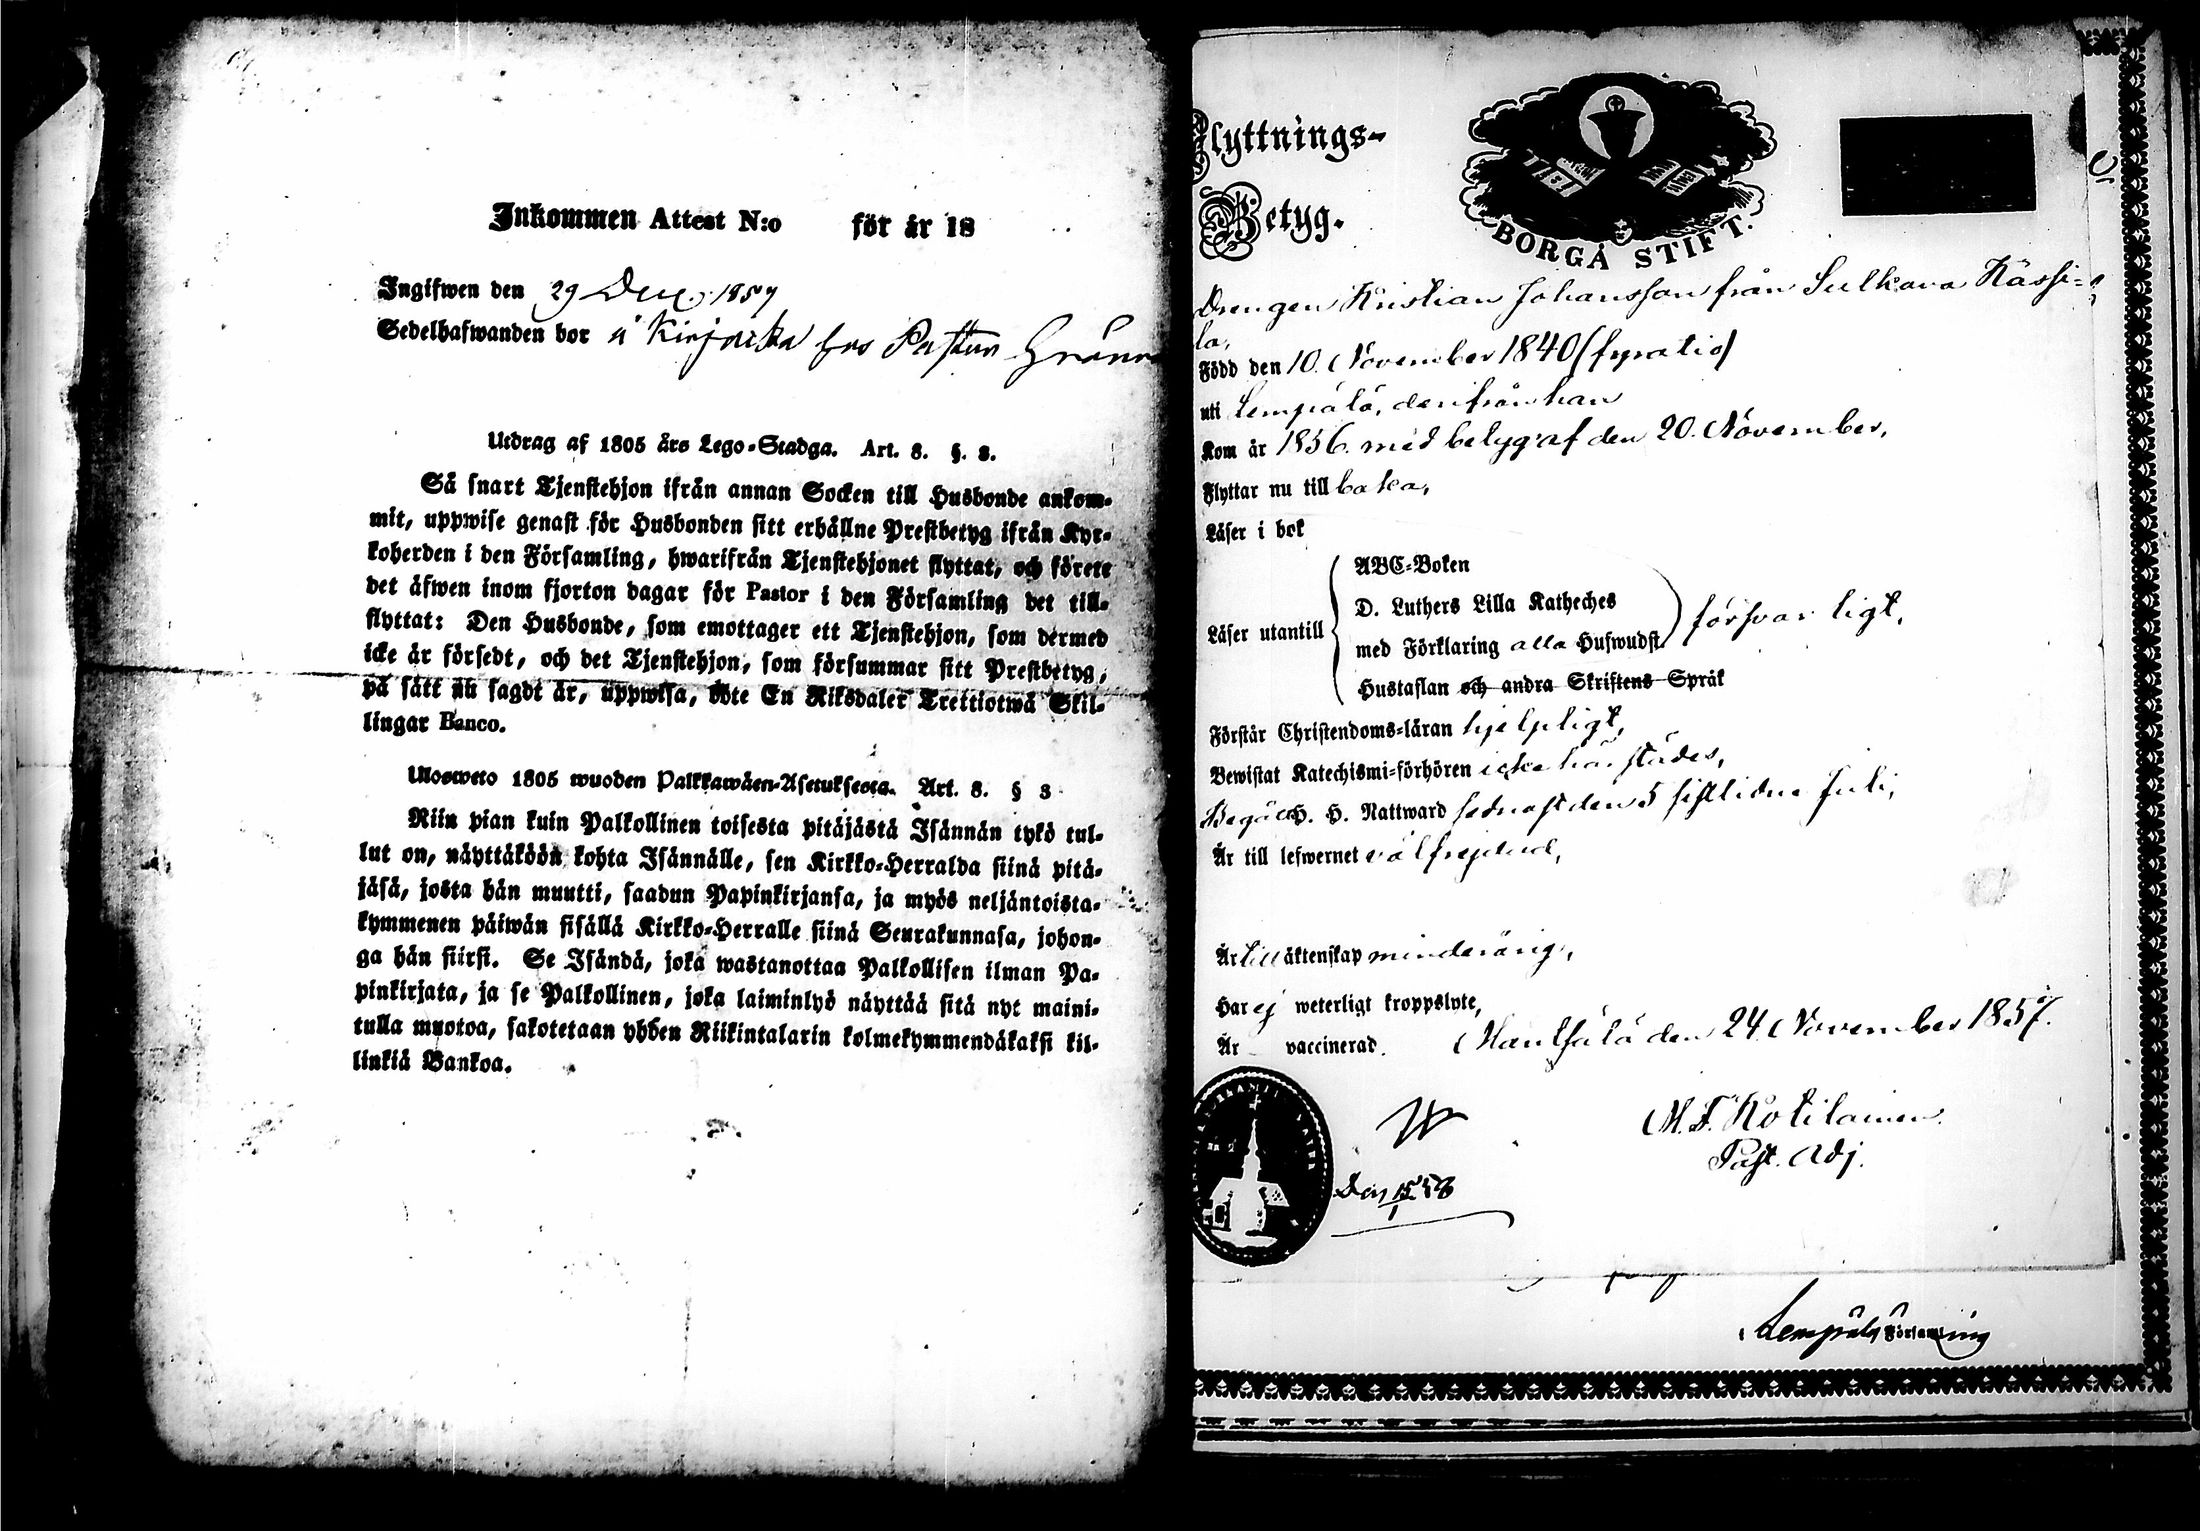 Inkommen Attest N:o för år 18
Ingifwen den 29 Dec. 1857
Sedelhafwanden bor å Kirjaska hos Pastun Grönr
Utdrag af 1805 års Lego-Stadga. Art. 8. §. 3.
Så snart Tjenstehjon ifrån annan Socken till Husbonde ankom-
mit, uppwise genast för Husbonden sitt erhållne Prestbetyg ifrån Kyr-
koherden i den Församling, hwarifrån Tjenstehjonet flyttat, och förete
det äfwen inom fjorton dagar för Pastor i den Församling det till-
flyttat: Den Husbonde, som emottager ett Tjenstehjon, som dermed
icke är försedt, och det Tjenstehjon, som försummar sitt Prestbetyg,
på sätt nu sagdt är, uppwisa, böte En Riksdaler Trettiotwå Skil-
lingar Banco.
Ulosweto 1805 wuoden Palkkawäen-Asetuksesta. Art. 8. § 3
Niin pian kuin Palkollinen toisesta pitäjästä Isännän tykö tul-
lut on, näyttäköön kohta Isännälle, sen Kirkko-Herralda siinä pitä-
jäsä, josta hän muutti, saadun Papinkirjansa, ja myös neljäntoista-
kymmenen päiwän sisällä Kirkko-Herralle siinä Seurakunnasa, johon-
ga hän siirsi. Se Isändä, joka wastanottaa Palkollisen ilman Pa-
pinkirjata, ja se Palkollinen, joka laiminlyö näyttää sitä nyt maini-
tulla muotoa, sakotetaan yhden Riikintalarin kolmekymmendäkaksi kil-
linkiä Bankoa.
Flyttnings-
Betyg.
BORGÅ STIFT.
Drengen Kristian Johansson från Sulkava Kässi-
la,
Född den 10. November 1840 (fyratio)
uti Lempälä, derifrån han
Kom år 1856 med betyg af den 20. November,
Flyttar nu till baka,
Läser i bok
ABC-Boken
D. Luthers Lilla Katheches
Läser utantill
med Förklaring alla Hufwudst.
försvarligt,
Hustaflan och andra Skriftens Språk
Förstår Christendoms-läran hjelpligt,
Bewistat Katechismi-förhören icke härstädes,
Begått H. H. Nattward sednast den 5 sistlidne Juli,
Är till lefwernet välfrejdad,
Är till äktenskap minderårig,
Har ej weterligt kroppslyte,
Är vaccinerad.
Mantsälä den 24 November 1857.
M. F. Kotilainen.
Past. Adj.
Den 15/1 58
Lempälä Församling